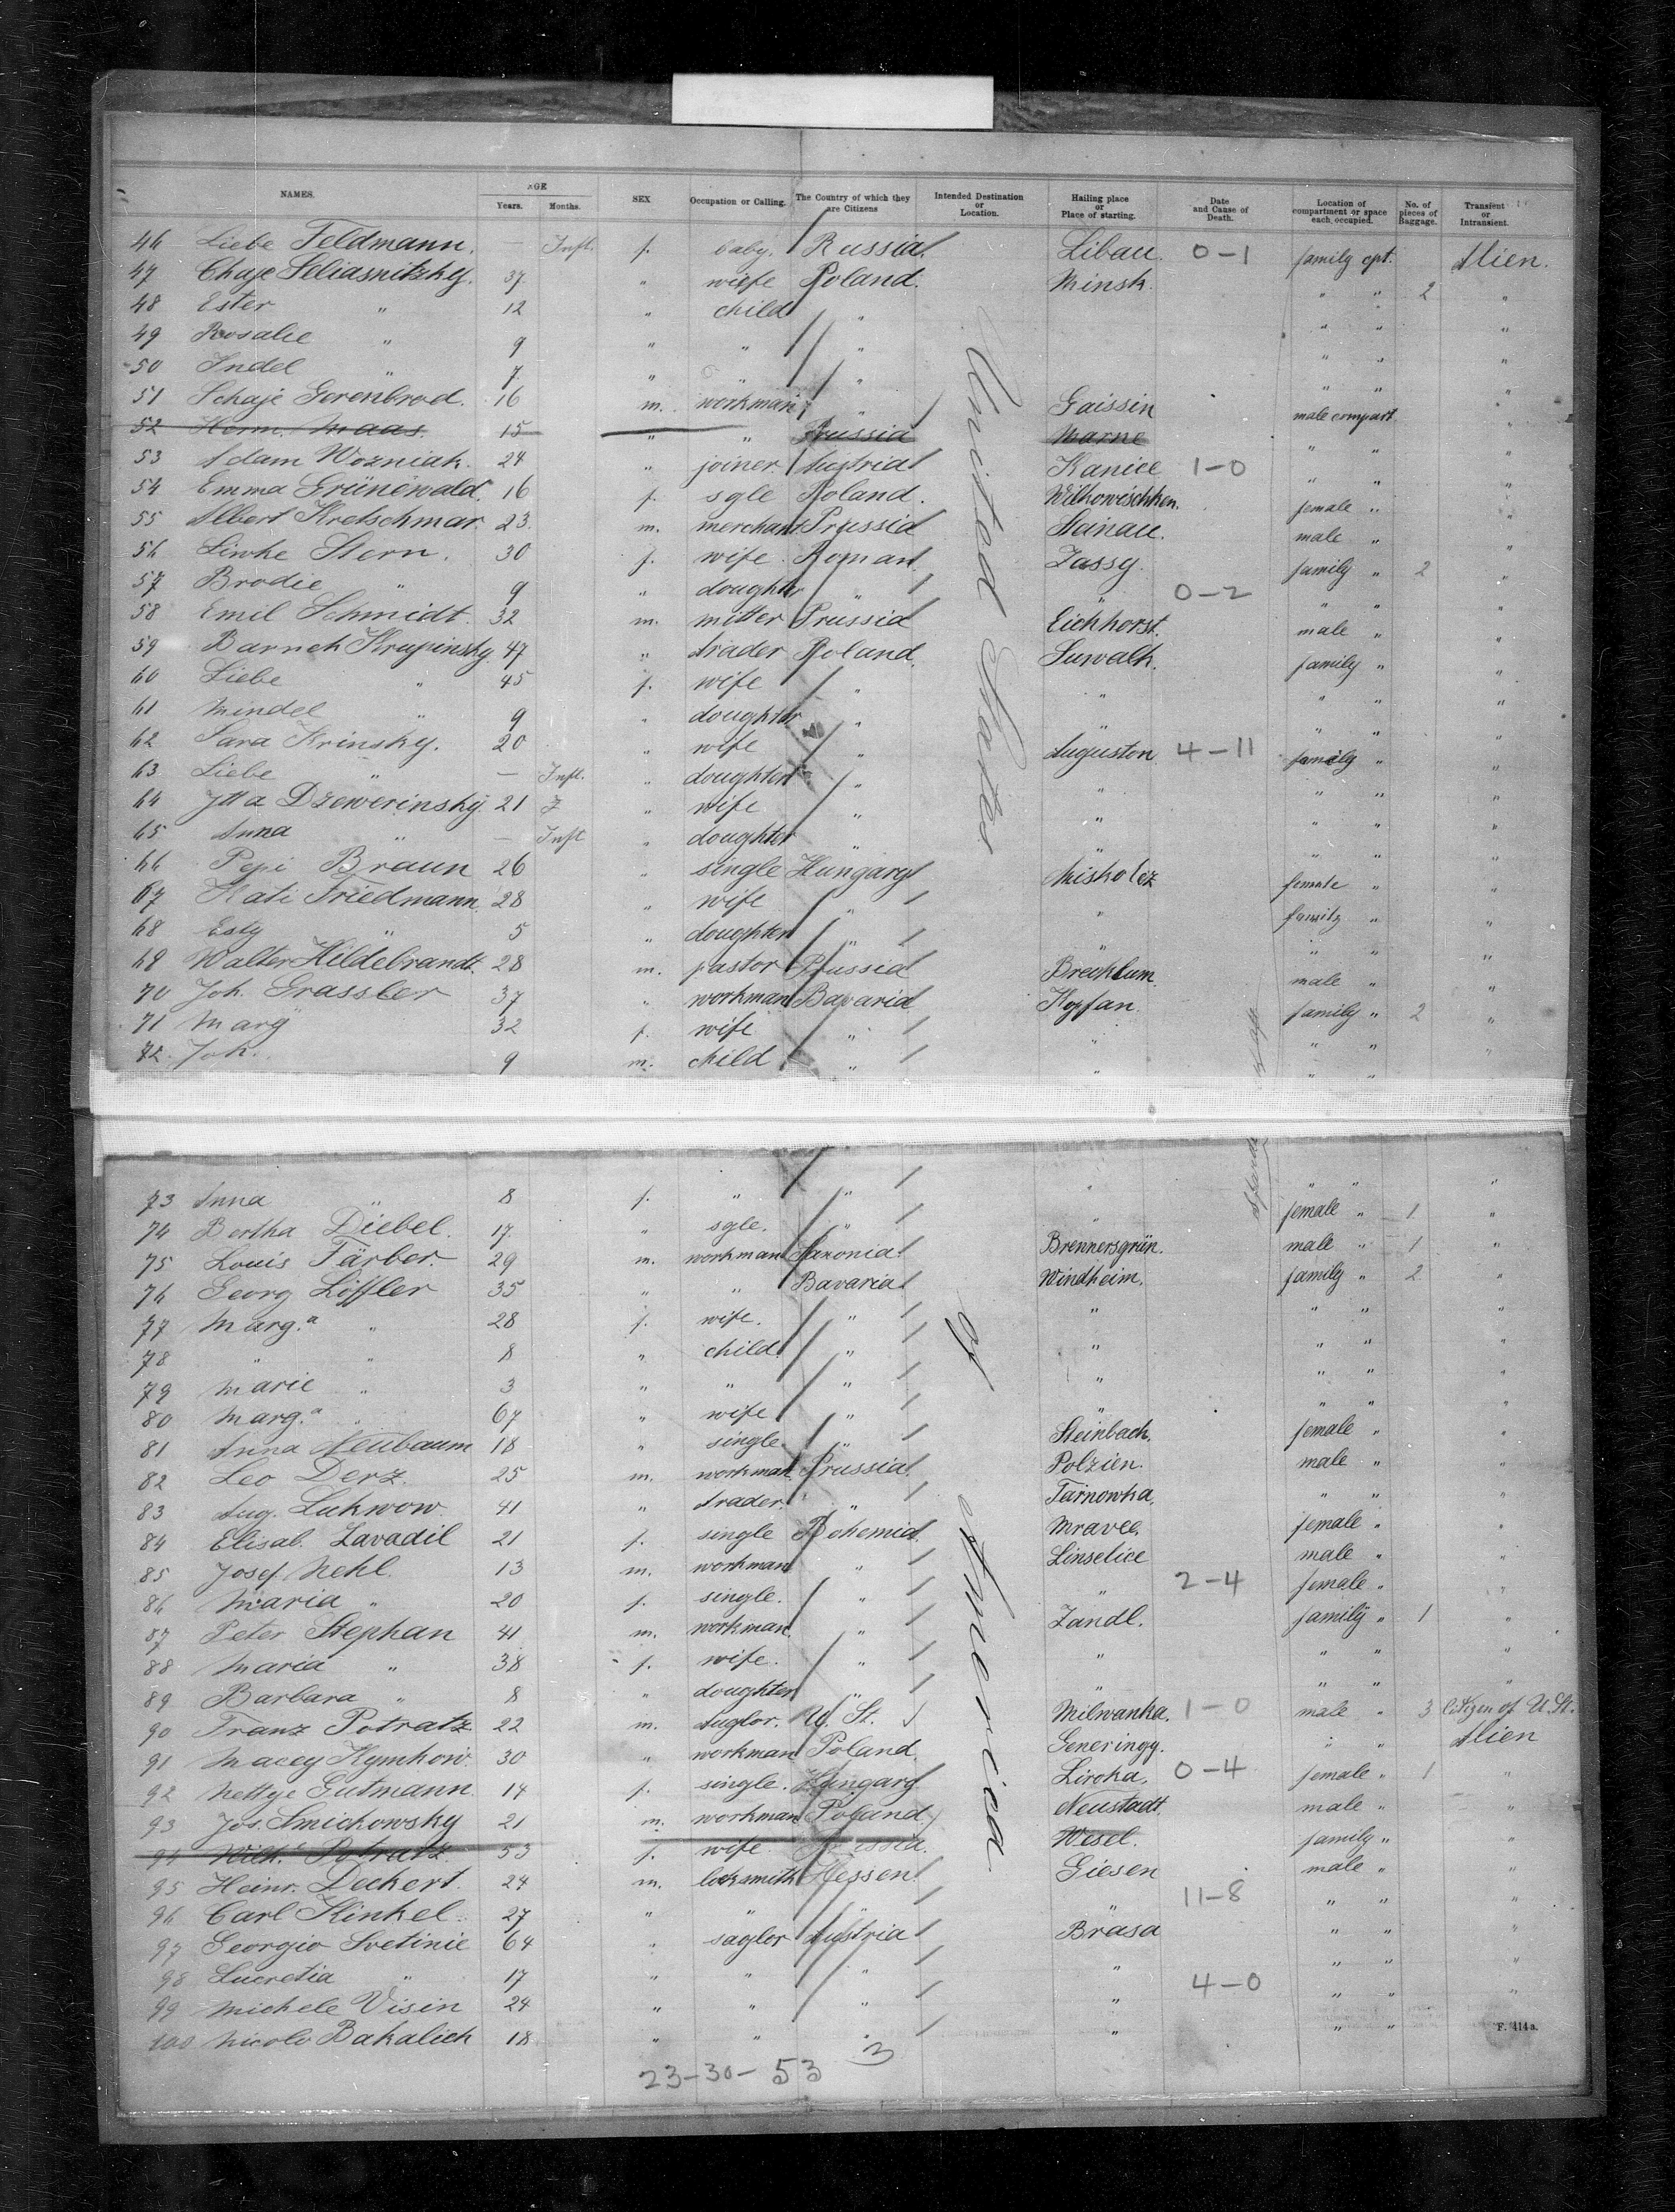 NAMES. AGE Years. Months. SEX Occupation or Calling. The Country of which they are Citizens Intended Destination or Location. Hailing place or Place of starting. Date and Cause of Death. Location of compartment or space each occupied. No. of pieces of Baggage. Transient or Intransient.
46 Liebe Feldmann. — Inft. f. baby. Russia Libau. 0-1 family cpt. Alien.
47 Chaje Seliasnitzky. 37 " wiefe Poland. Minsk. " " 2 "
48 Ester " 12 " child " " " "
49 Rosalie " 9 " " " " " "
50 Indel " 7 " " " " " "
51 Schaje Gorenbrod. 16 m. workman " Gaissin male compart. "
52 Herm. Maas. 15 " " Prussia Marne " " "
53 Adam Wozniak. 24 " joiner Austria Kanice 1-0 " " "
54 Emma Grünewald. 16 f. sgle Poland. Wilkowischken. female " "
55 Albert Kretschmar. 23. m. merchant Prussia Steinau. male " "
56 Liwke Stern. 30 f. wife Roman Jassy. family " 2 "
57 Brodie " 9 " doughter " " 0-2 " " "
58 Emil Schmidt. 32 m. mitter Prussia Eichhorst. male " "
59 Baruch Krupinsky 47 " trader Poland. Suwalk. family " "
60 Liebe " 45 f. wife " " " " "
61 Mindel " 9 " doughter " " " " "
62 Sara Krinsky. 20 " wife " Auguston 4-11 family " "
63 Liebe " — Inft. " doughter " " " " "
64 Itta Dzewerinsky. 21 " wife " " " " "
65 Anna " — Inft " doughter " " " "
66 Pepi Braun 26 " single Hungary Miskolcz female " "
67 Kati Friedmann. 28 " wife " " family " "
68 Esty " 5 " doughter " " " " "
69 Walter Hildebrandt. 28 m. pastor Prussia Brecklum. male " "
70 Joh. Grassler 37 " workman Bavaria Kopfan. family " 2 "
71 Marg " 32 f. wife " " " " "
72. Joh. 9 m. child " " " "
73 Anna " 8 f. " " " " " "
74 Bertha Diebel. 17. " sgle. " " female " 1 "
75 Louis Färber. 29 m. workman Saxonia. Brennersgrün. male " 1 "
76 Georg Löffler 35 " " Bavaria Windheim. family " 2 "
77 Marg.a " 28 f. wife. " " " " "
78 " " 8 " child " " " " "
79 Marie " 3 " " " " " " "
80 Marg.a " 67 " wife " " " " "
81 Anna Neubaum 18 " single. " Steinbach. female " "
82 Leo Derz. 25 m. workman. Prussia. Polzien. male " "
83 Aug. Lukwow. 41 " trader. " Tarnowka. " " "
84 Elisab. Zavadil 21 f. single Bohemia. Mravec. female " "
85 Josef Nehl. 13 m. workman " Linselice male " "
86 Maria " 20 f. single. " " 2-4 female " "
87 Peter Stephan 41 m. workman. " Zandl. family " 1 "
88 Maria " 38 f. wife. " " " " "
89 Barbara " 8 " doughter " " " " "
90 Franz Potratz 22 m. U. St. Milwanka. 1-0 male " 3 Citizen of U. St.
91 Macey Kymkow. 30 " workman Poland. Generingg. " " Alien
92 Nettye Gutmann. 14 f. single. Hungary Liroka. 0-4 female " 1 "
93 Jos. Smichowsky 21 m. workman Poland Neustadt. male " "
94 Wilh.e Potratz 53 f. wife Prussia. Wesel. family " "
95 Heinr. Deckert. 24 m. locksmith Hessen. Giesen male " "
96 Carl Kinkel. 27 " " " " 11-8 " " "
97 Georgio Svetinic 64 " saylor Austria Brasa " " "
98 Lucretia " 17 " " " " " " "
99 Michele Visin 24 " " " " 4-0 " " "
100 Nicolo Bakalich 18 " " " " " "
United States of America
F. 414a.
23-30-53 3